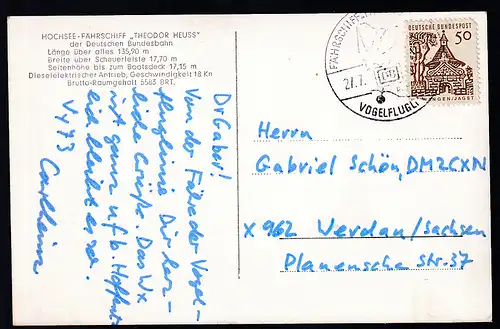 HOCHSEE-FÄHRSCHIFF „THEODOR HEUSS"
der Deutschen Bundesbahn
Länge über alles 135,90 m
Breite über Scheuerleiste 17,70 m
Seitenhöhe bis zum Bootsdeck 17,15 m
Dieselelektrischer Antrieb, Geschwindigkeit 18 Kn
Brutto-Raumgehalt 5583 BRT.
Dr Gaber!
Von der Fähre der Vogel-
fluglinie Dir herz-
liche Grüße. Das Wx
ist ganz uf b. Hoffent-
lich bleibt es so.
Vy 73
Carlheinz
FÄHRSCHIFF
27.7.
DB
VOGELFLUGLI
DEUTSCHE BUNDESPOST
50
ELLWANGEN/JAGST
Herrn
Gabriel Schön, DM2CXN
X 962 Werdau/Sachsen
Planensche Str. 37